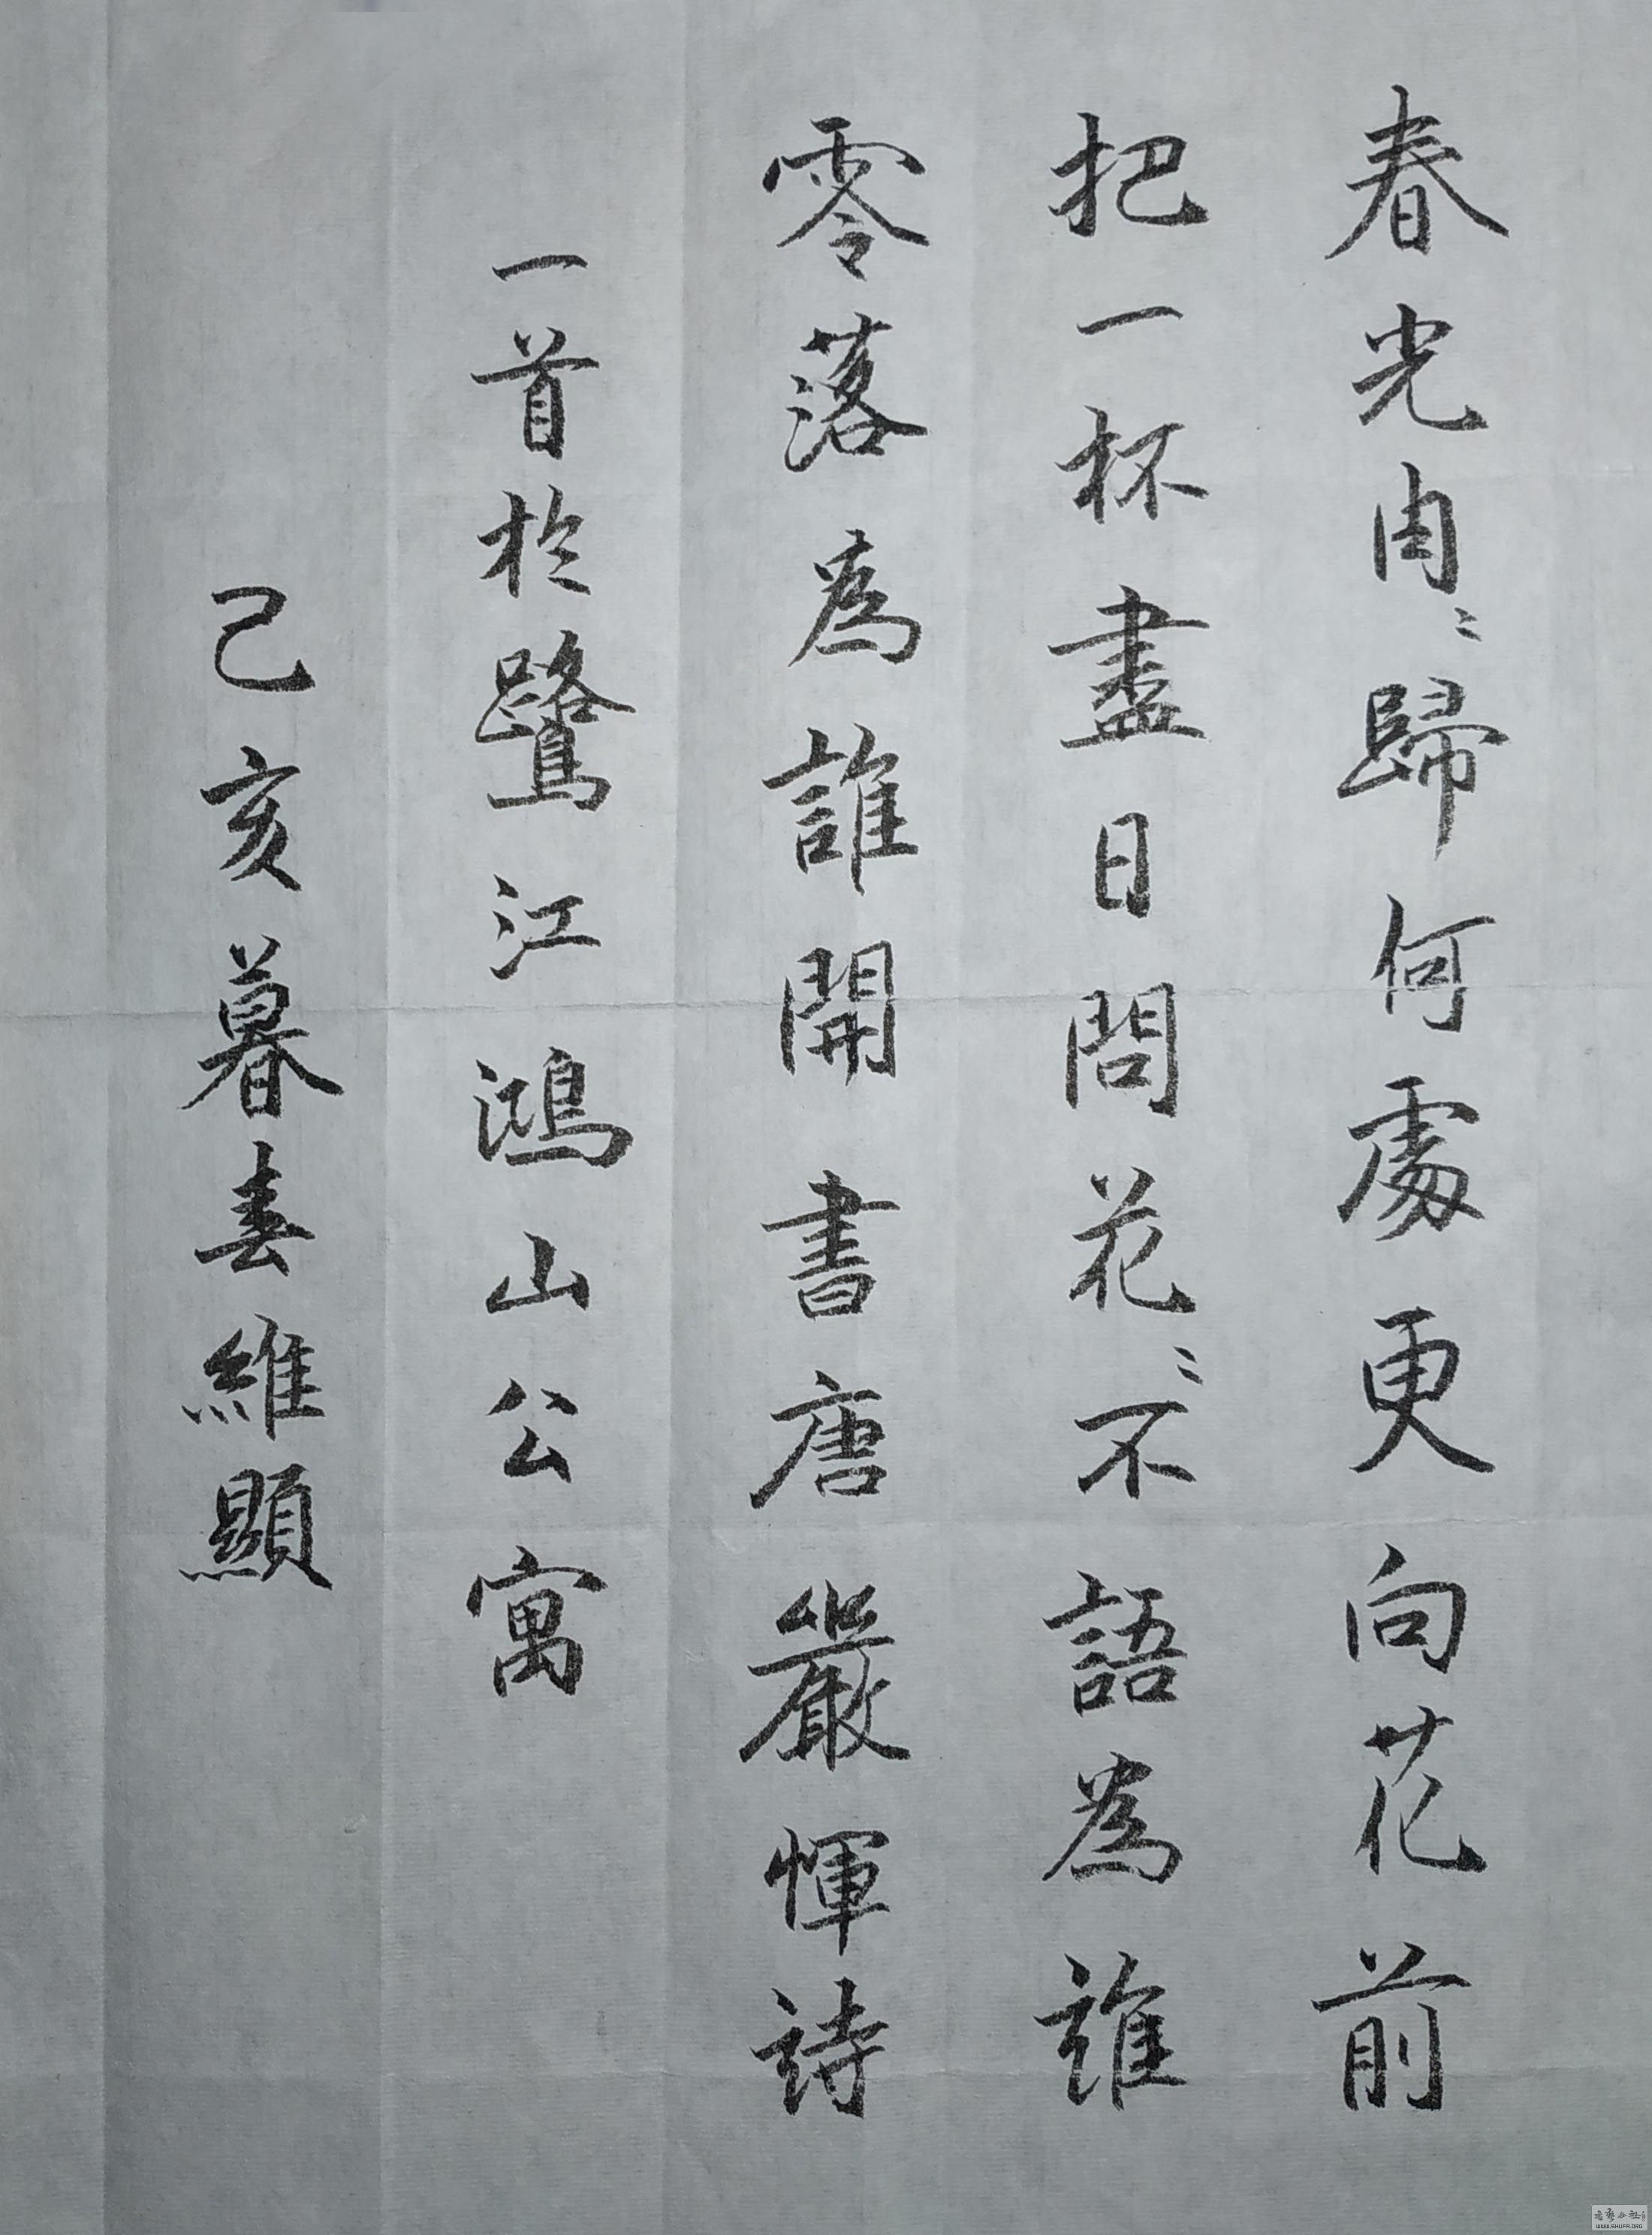 春光冉〻歸何處更向花前
把一杯盡日問花〻不語為誰
零落為誰開書唐嚴惲詩
一首於鷺江鴻山公寓
己亥暮春維顯
WWW.SHUFA.ORG